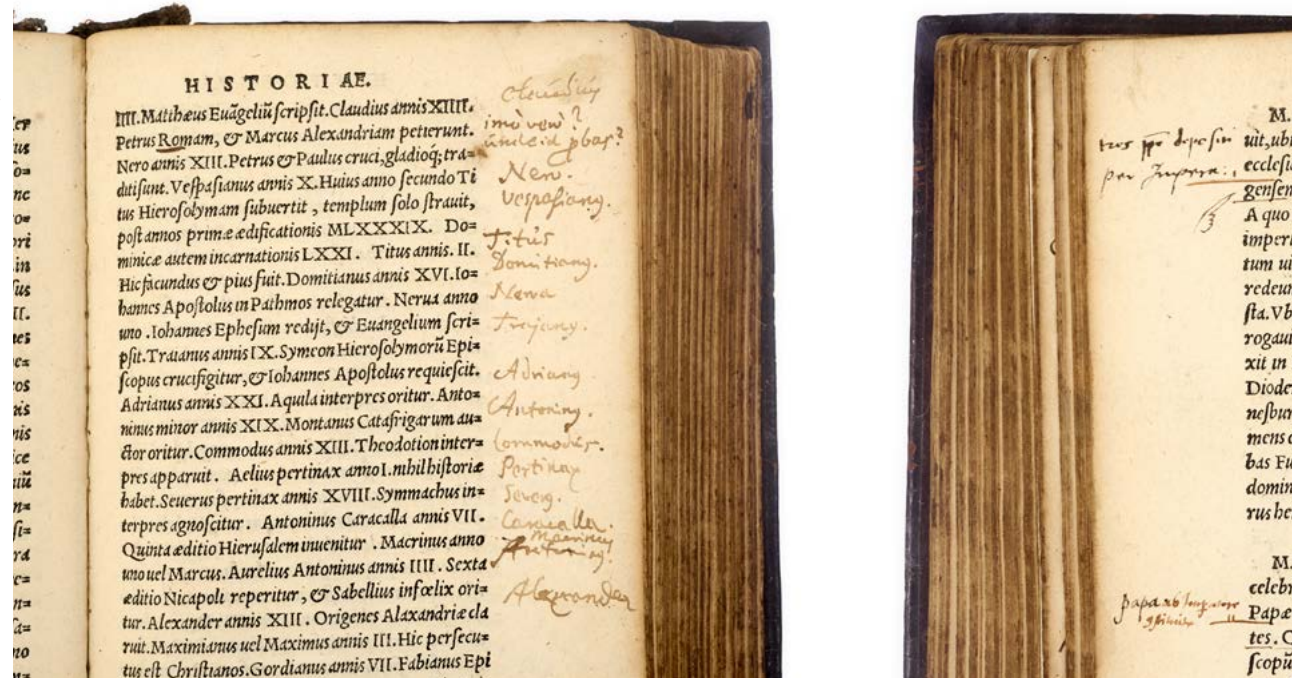 HISTORIAE.
IIII. Matthæus Euãgeliũ scripsit. Claudius annis XIIII.
Petrus Romam, & Marcus Alexandriam petierunt.
Nero annis XIII. Petrus & Paulus cruci, gladioq; tra-
diti sunt. Vespasianus annis X. Huius anno secundo Ti
tus Hierosolymam subuertit, templum solo strauit,
post annos primæ ædificationis MLXXXIX. Do=
minicæ autem incarnationis LXXI. Titus annis. II.
Hic facundus & pius fuit. Domitianus annis XVI. Io=
hannes Apostolus in Pathmos relegatur. Nerua anno
uno. Iohannes Ephesum redijt, & Euangelium scri=
psit. Traianus annis IX. Symeon Hierosolymorũ Epi=
scopus crucifigitur, & Iohannes Apostolus requiescit.
Adrianus annis XXI. Aquila interpres oritur. Anto=
ninus minor annis XIX. Montanus Catafrigarum au=
ctor oritur. Commodus annis XIII. Theodotion inter=
pres apparuit. Aelius pertinax anno I. nihil historiæ
habet. Seuerus pertinax annis XVIII. Symmachus in=
terpres agnoscitur. Antoninus Caracalla annis VII.
Quinta æditio Hierusalem inuenitur. Macrinus anno
uno uel Marcus. Aurelius Antoninus annis IIII. Sexta
æditio Nicapoli reperitur, & Sabellius infœlix ori=
tur. Alexander annis XIII. Origenes Alaxandriæ cla
ruit. Maximianus uel Maximus annis III. Hic persecu=
tus est Christianos. Gordianus annis VII. Fabianus Epi
Claudius
imò verò?
unde id pbas?
Nero.
Vespasianꝰ.
Titus
Domitianꝰ.
Nerva
Trajanꝰ.
Adrianꝰ
Antoninꝰ.
Commodus.
Pertinax
Severꝰ.
Caracalla.
Macrinꝰ
Antoninꝰ.
Alexander
tres depositi
per Impera:
papa ab Imperatore
M.
uit, ubi
ecclesia
gensen
A quo
imperi
tum ui
redeun
sta. Vb
rogaui
xit in
Diode
nesbur
mens
bas Fu
domin
rus
M.
celebr
Papæ
tes. C
scopũ